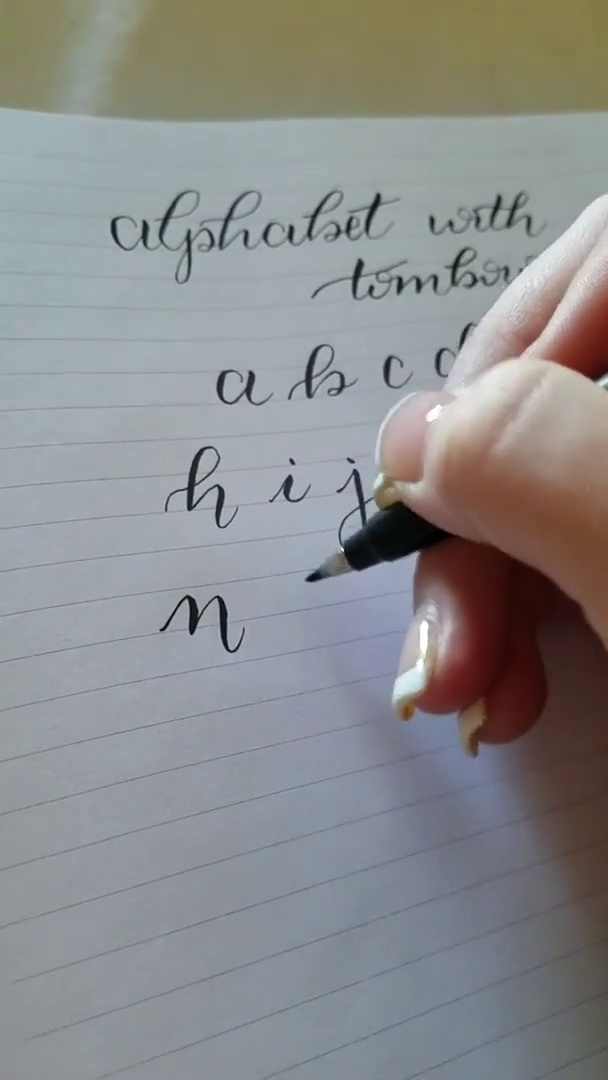 alphabet with
a b c d
h i j
n